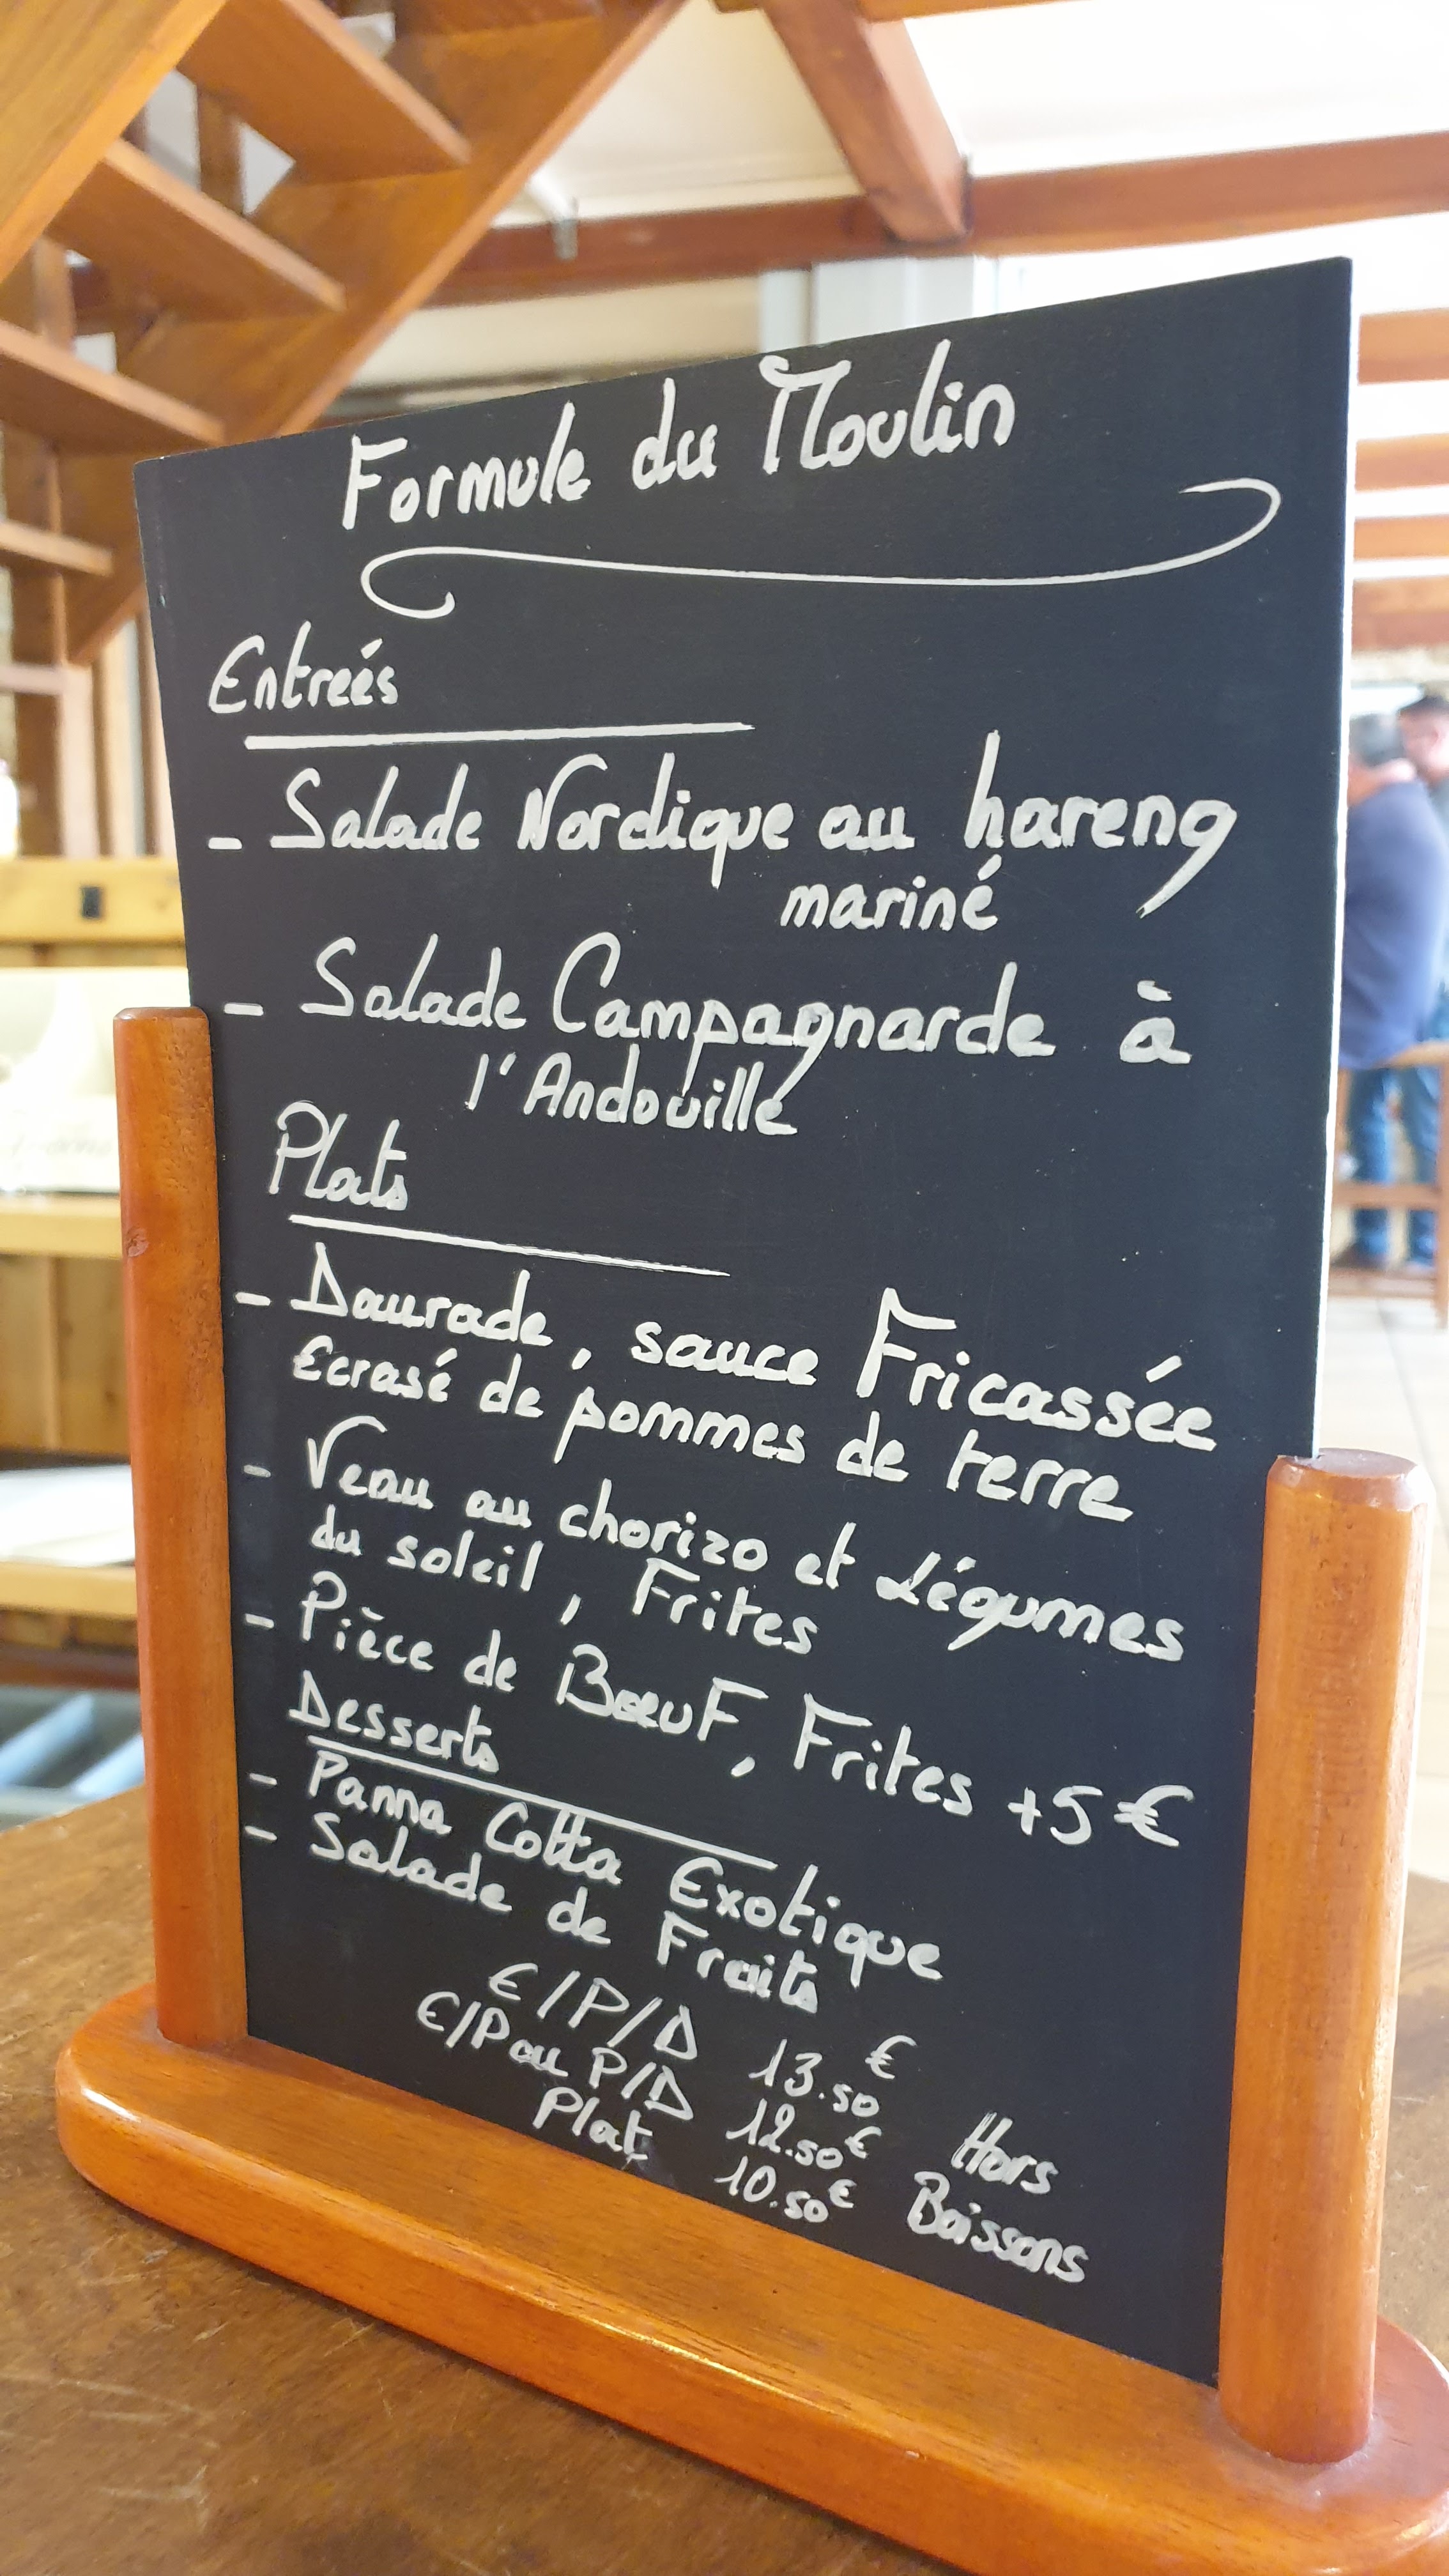 Formule du Moulin
Entreés
- Salade Nordique au hareng
mariné
- Salade Campagnarde à
l'Andouille
Plats
- Daurade, sauce Fricassée
Ecrasé de pommes de terre
- Veau au chorizo et Légumes
du soleil, Frites
- Pièce de BœuF, Frites +5€
Desserts
- Panna Cotta Exotique
- Salade de Fruits
E/P/D 13.50€
E/P ou P/D 12.50€ Hors
Plat 10.50€ Boissons